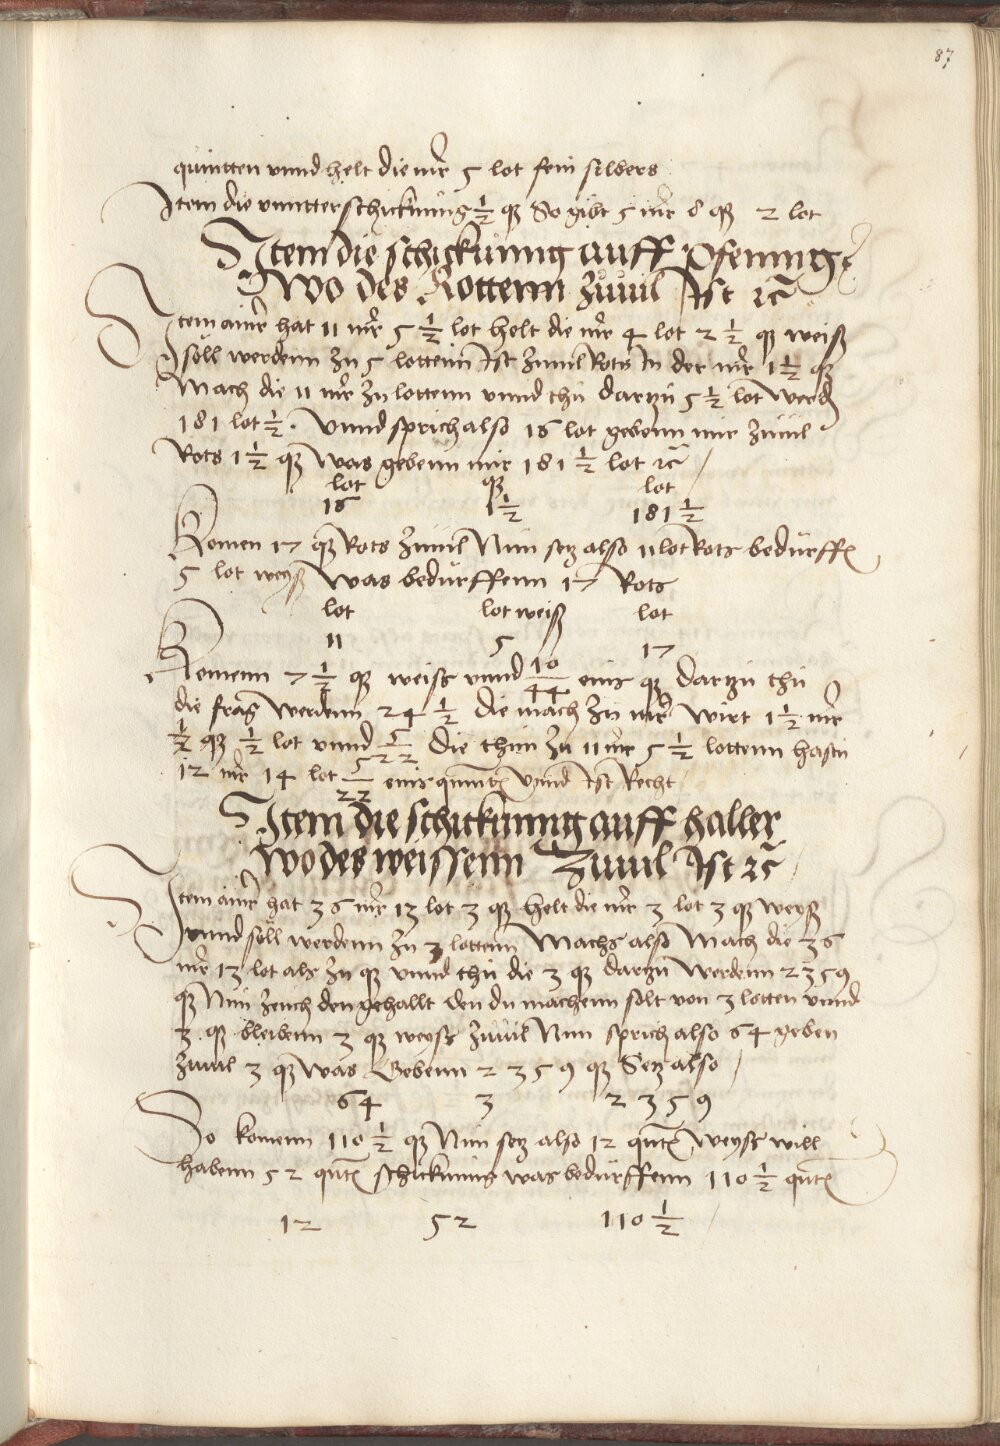 87
quintten vnnd helt die mr 5 lot fein silbers
Item die vnntterschickung 1/2 q So gibt 5 mr 8 q 2 lot
Item die schickung auff pfening
Wo des Rottenn zuuil Ist rc
Item ainer hat 11 mr 5 1/2 lot helt die mr 4 lot 2 1/2 q weiß
soll werdenn zu 5 lottenn Ist zuuil Rots In der mr 1 1/2 q
Mach die 11 mr zu lottenn vnnd thu dartzu 5 1/2 lot werden
181 lot 1/2. Vnnd sprich also 16 lot gebenn mir zuuil
Rots 1 1/2 q Was gebenn mir 181 1/2 lot rc /
lot q lot
16 1 1/2 181 1/2
Komen 17 q Rots zuuil Nun setz also 11 lot Rots bedurffen
5 lot weyß Was bedurffenn 17 Rots
lot lot weiß lot
11 5 17
Komenn 7 1/2 q weiß vnnd 10/44 eins q dartzu thu
die frag Werdenn 24 1/2 die mach zu mr Wirt 1 1/2 mr
1/2 q 1/2 lot vnnd 5/22 die thun zu 11 mr 5 1/2 lottenn hastu
12 mr 14 lot 5/22 eins quintn Vnnd Ist Recht
Item die schickung auff haller
Wo des weissenn Zuuil Ist rc
Item ainer hat 36 mr 13 lot 3 q helt die mr 3 lot 3 q weyß
vnnd soll werdenn zu 3 lottenn Machs also Mach die 36
mr 13 lot als zu q vnnd thu die 3 q dartzu Werdenn 2359
q Nun zeuch den gehallt den du machenn solt von 3 lotten vnnd
3 q bleibenn 3 q weyß zuuil Nun sprich also 64 geben
zuuil 3 q Was Gebenn 2359 q Setz also /
64 3 2359
So komenn 110 1/2 q Nun setz also 12 qutn Weyß will
habenn 52 qutn schickung was bedurffenn 110 1/2 qutn
12 52 110 1/2 /